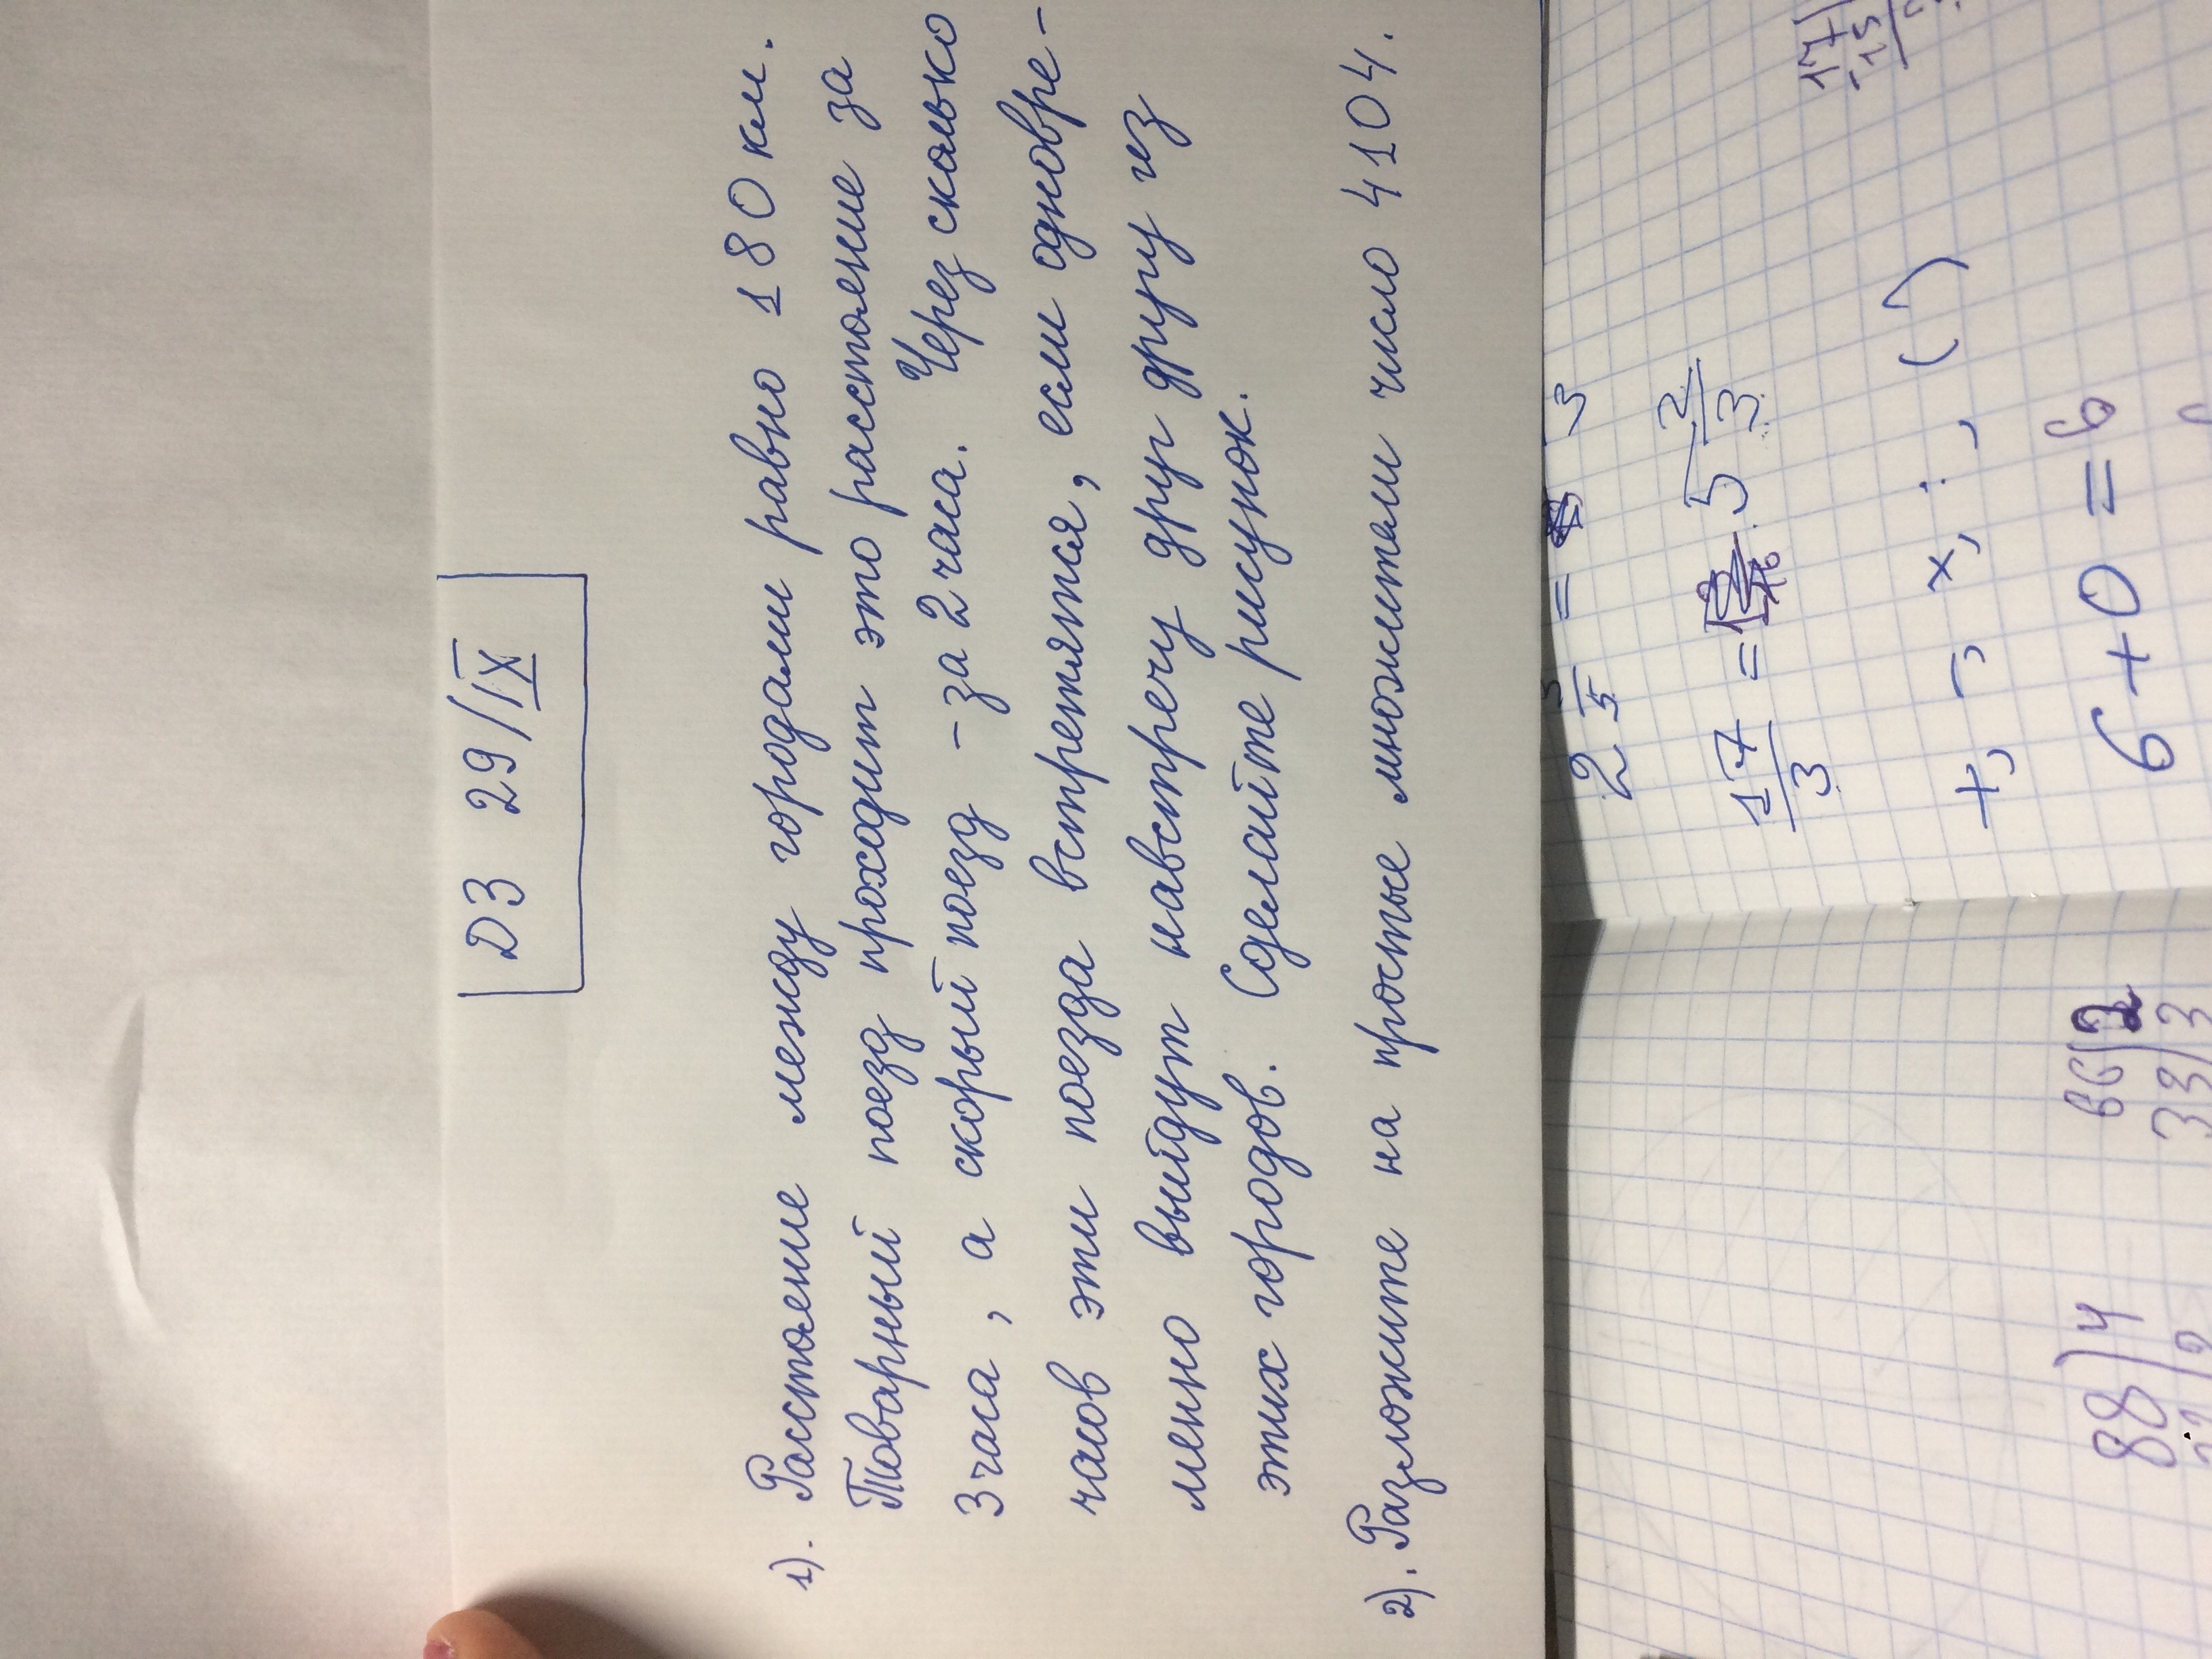 ДЗ 29/IX
1). Расстояние между городами равно 180 км.
Товарный поезд проходит это расстояние за
3 часа, а скорый поезд - за 2 часа. Через сколько
часов эти поезда встретятся, если одновре-
менно выйдут навстречу друг другу из
этих городов. Сделайте рисунок.
2). Разложите на простые множители число 4104.
17/3 = 5 2/3
+, -, ×, :, ()
6+0=6
88 | 4
66 | 2
33 | 3